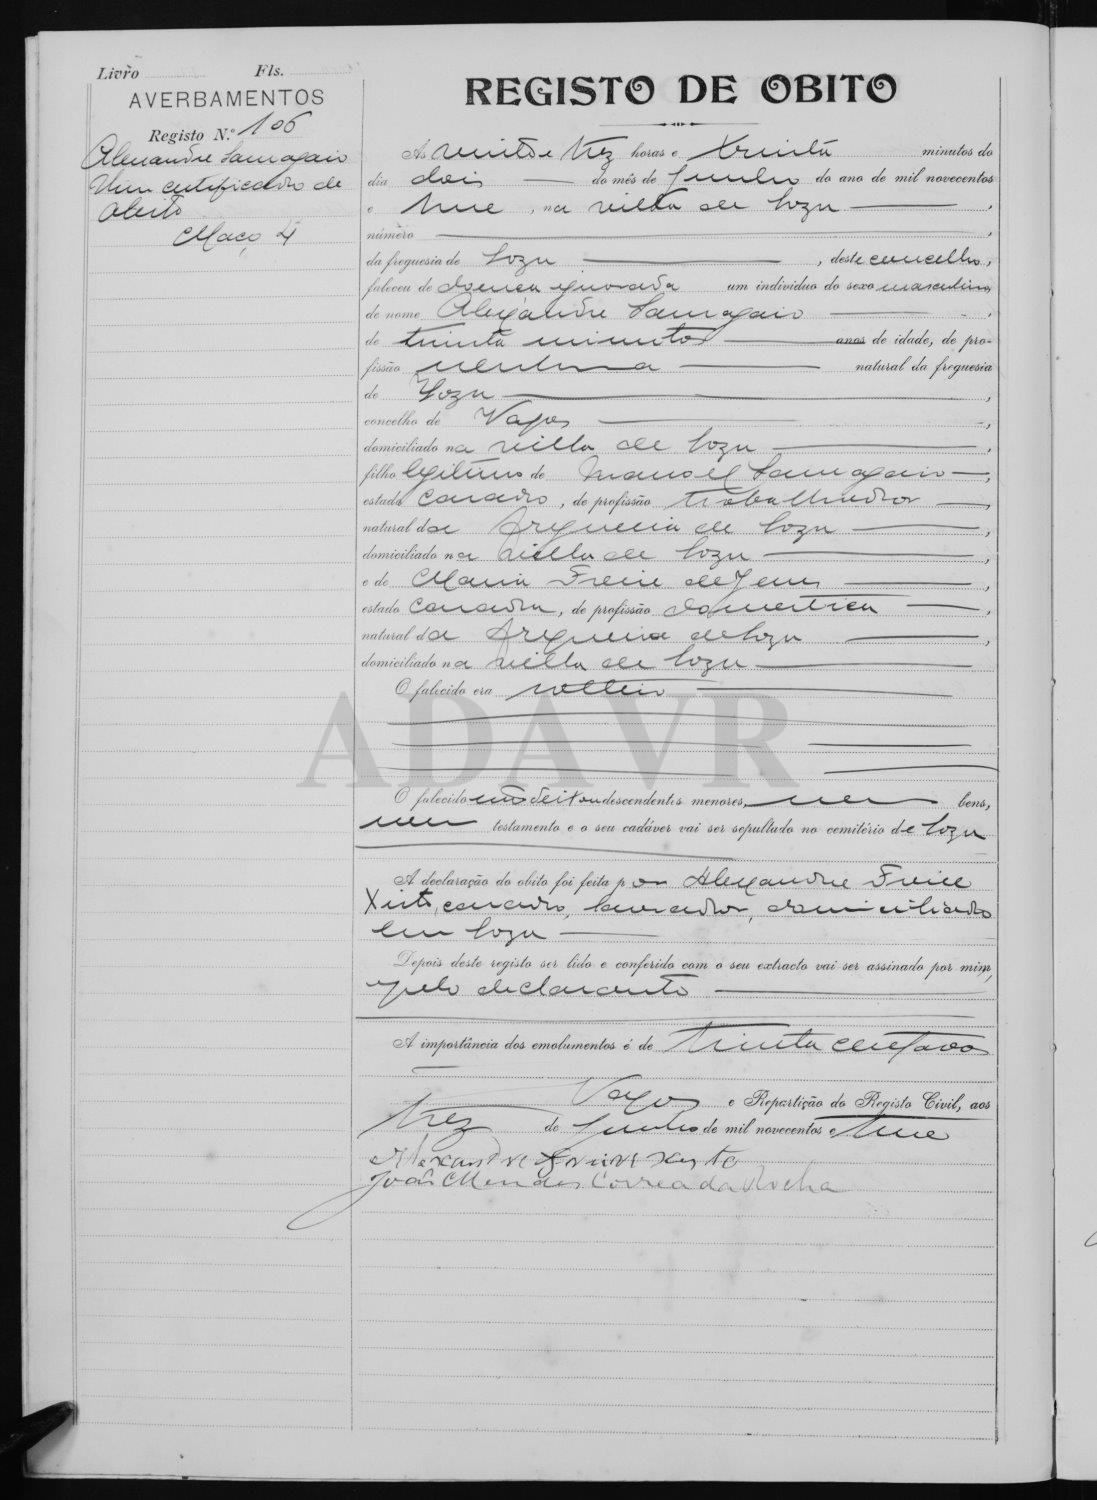 Livro Fls.
AVERBAMENTOS
Registo N.º 106
Alexandre Samagaio
Um certificado de
obito
Maço 4
REGISTO DE OBITO
Ás vinte e trez horas e trinta minutos do
dia dois do mês de Junho do ano de mil novecentos
e , na villa de Soza ,
número ,
da freguesia de Soza , deste concelho,
faleceu de doença ignorada um individuo do sexo masculino,
de nome Alexandre Samagaio ,
de trinta minutos anos de idade, de pro-
fissão nenhuma natural da freguesia
de Soza ,
concelho de Vagos ,
domiciliado na villa de Soza ,
filho legitimo de Manoel Samagaio ,
estado casado, de profissão trabalhador ,
natural da freguesia de Soza ,
domiciliado na villa de Soza ,
e de Maria Freire de Jesus ,
estado casada, de profissão domestica ,
natural da freguesia de Soza ,
domiciliado na villa de Soza
O falecido era solteiro
ADAVR
O falecido não deixou descendentes menores, nem bens,
nem testamento e o seu cadáver vai ser sepultado no cemitério de Soza
A declaração do obito foi feita por Alexandre Freire
Xisto, casado, lavrador, domiciliado
em Soza
Depois deste registo ser lido e conferido com o seu extracto vai ser assinado por mim,
e pelo declarante
A importância dos emolumentos é de trinta centavos
Vagos e Repartição do Registo Civil, aos
trez de Junho de mil novecentos e
Alexandre Freire Xisto
João Mendes Correa da Rocha